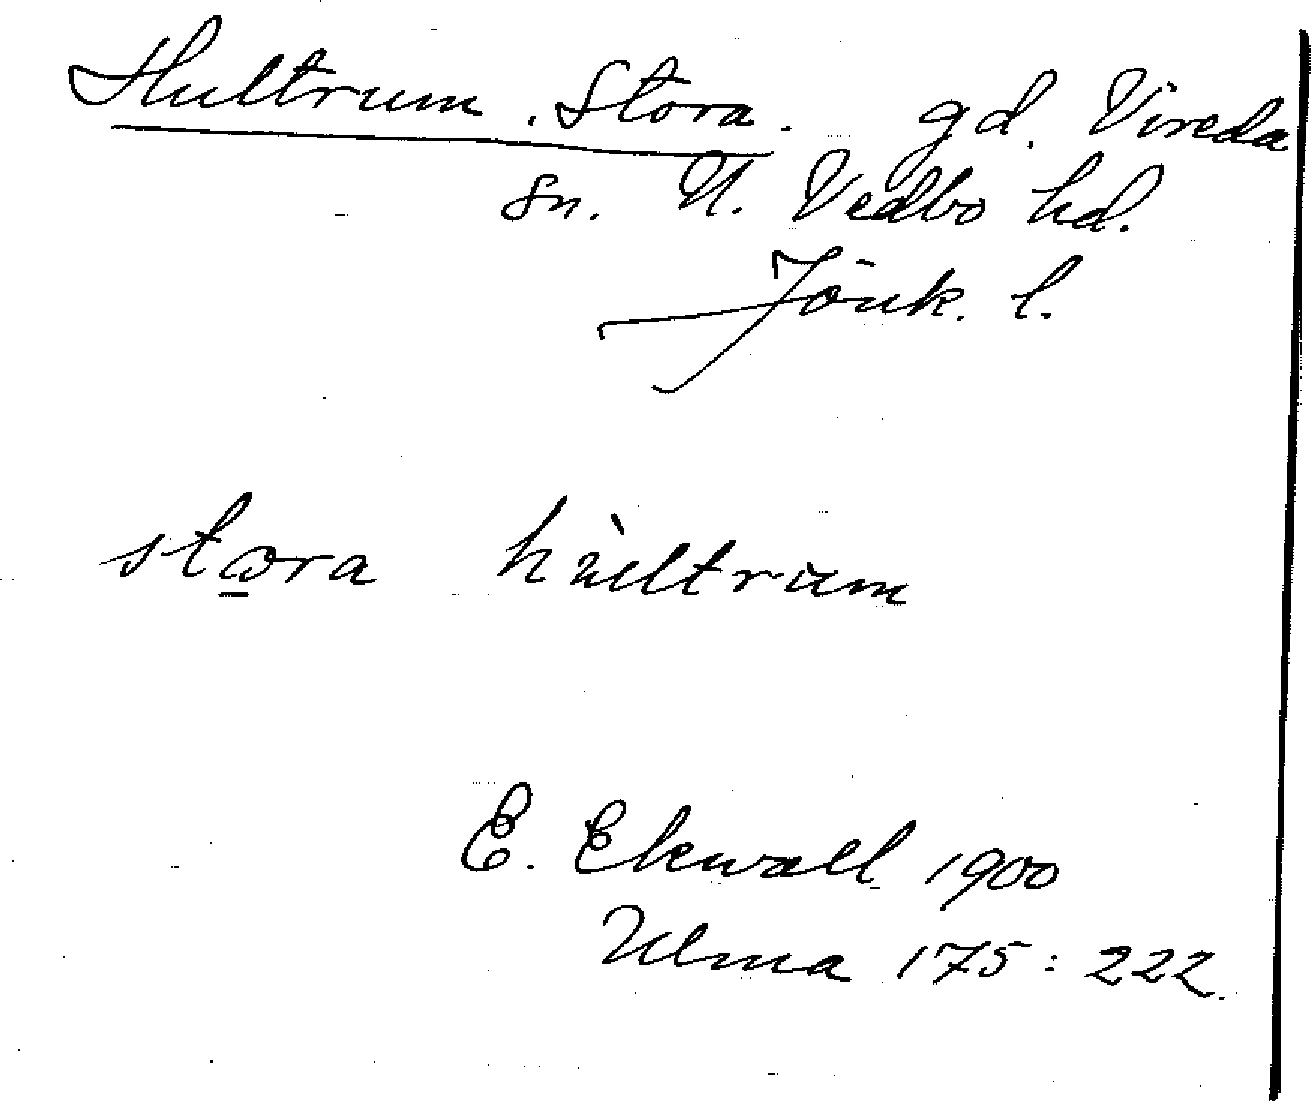 Hultrum, Stora. gd. Vireda
sn. N. Vedbo hd.
Jönk. l.
stora hùltrum
E. Ekwall 1900
Ulma 175:222.